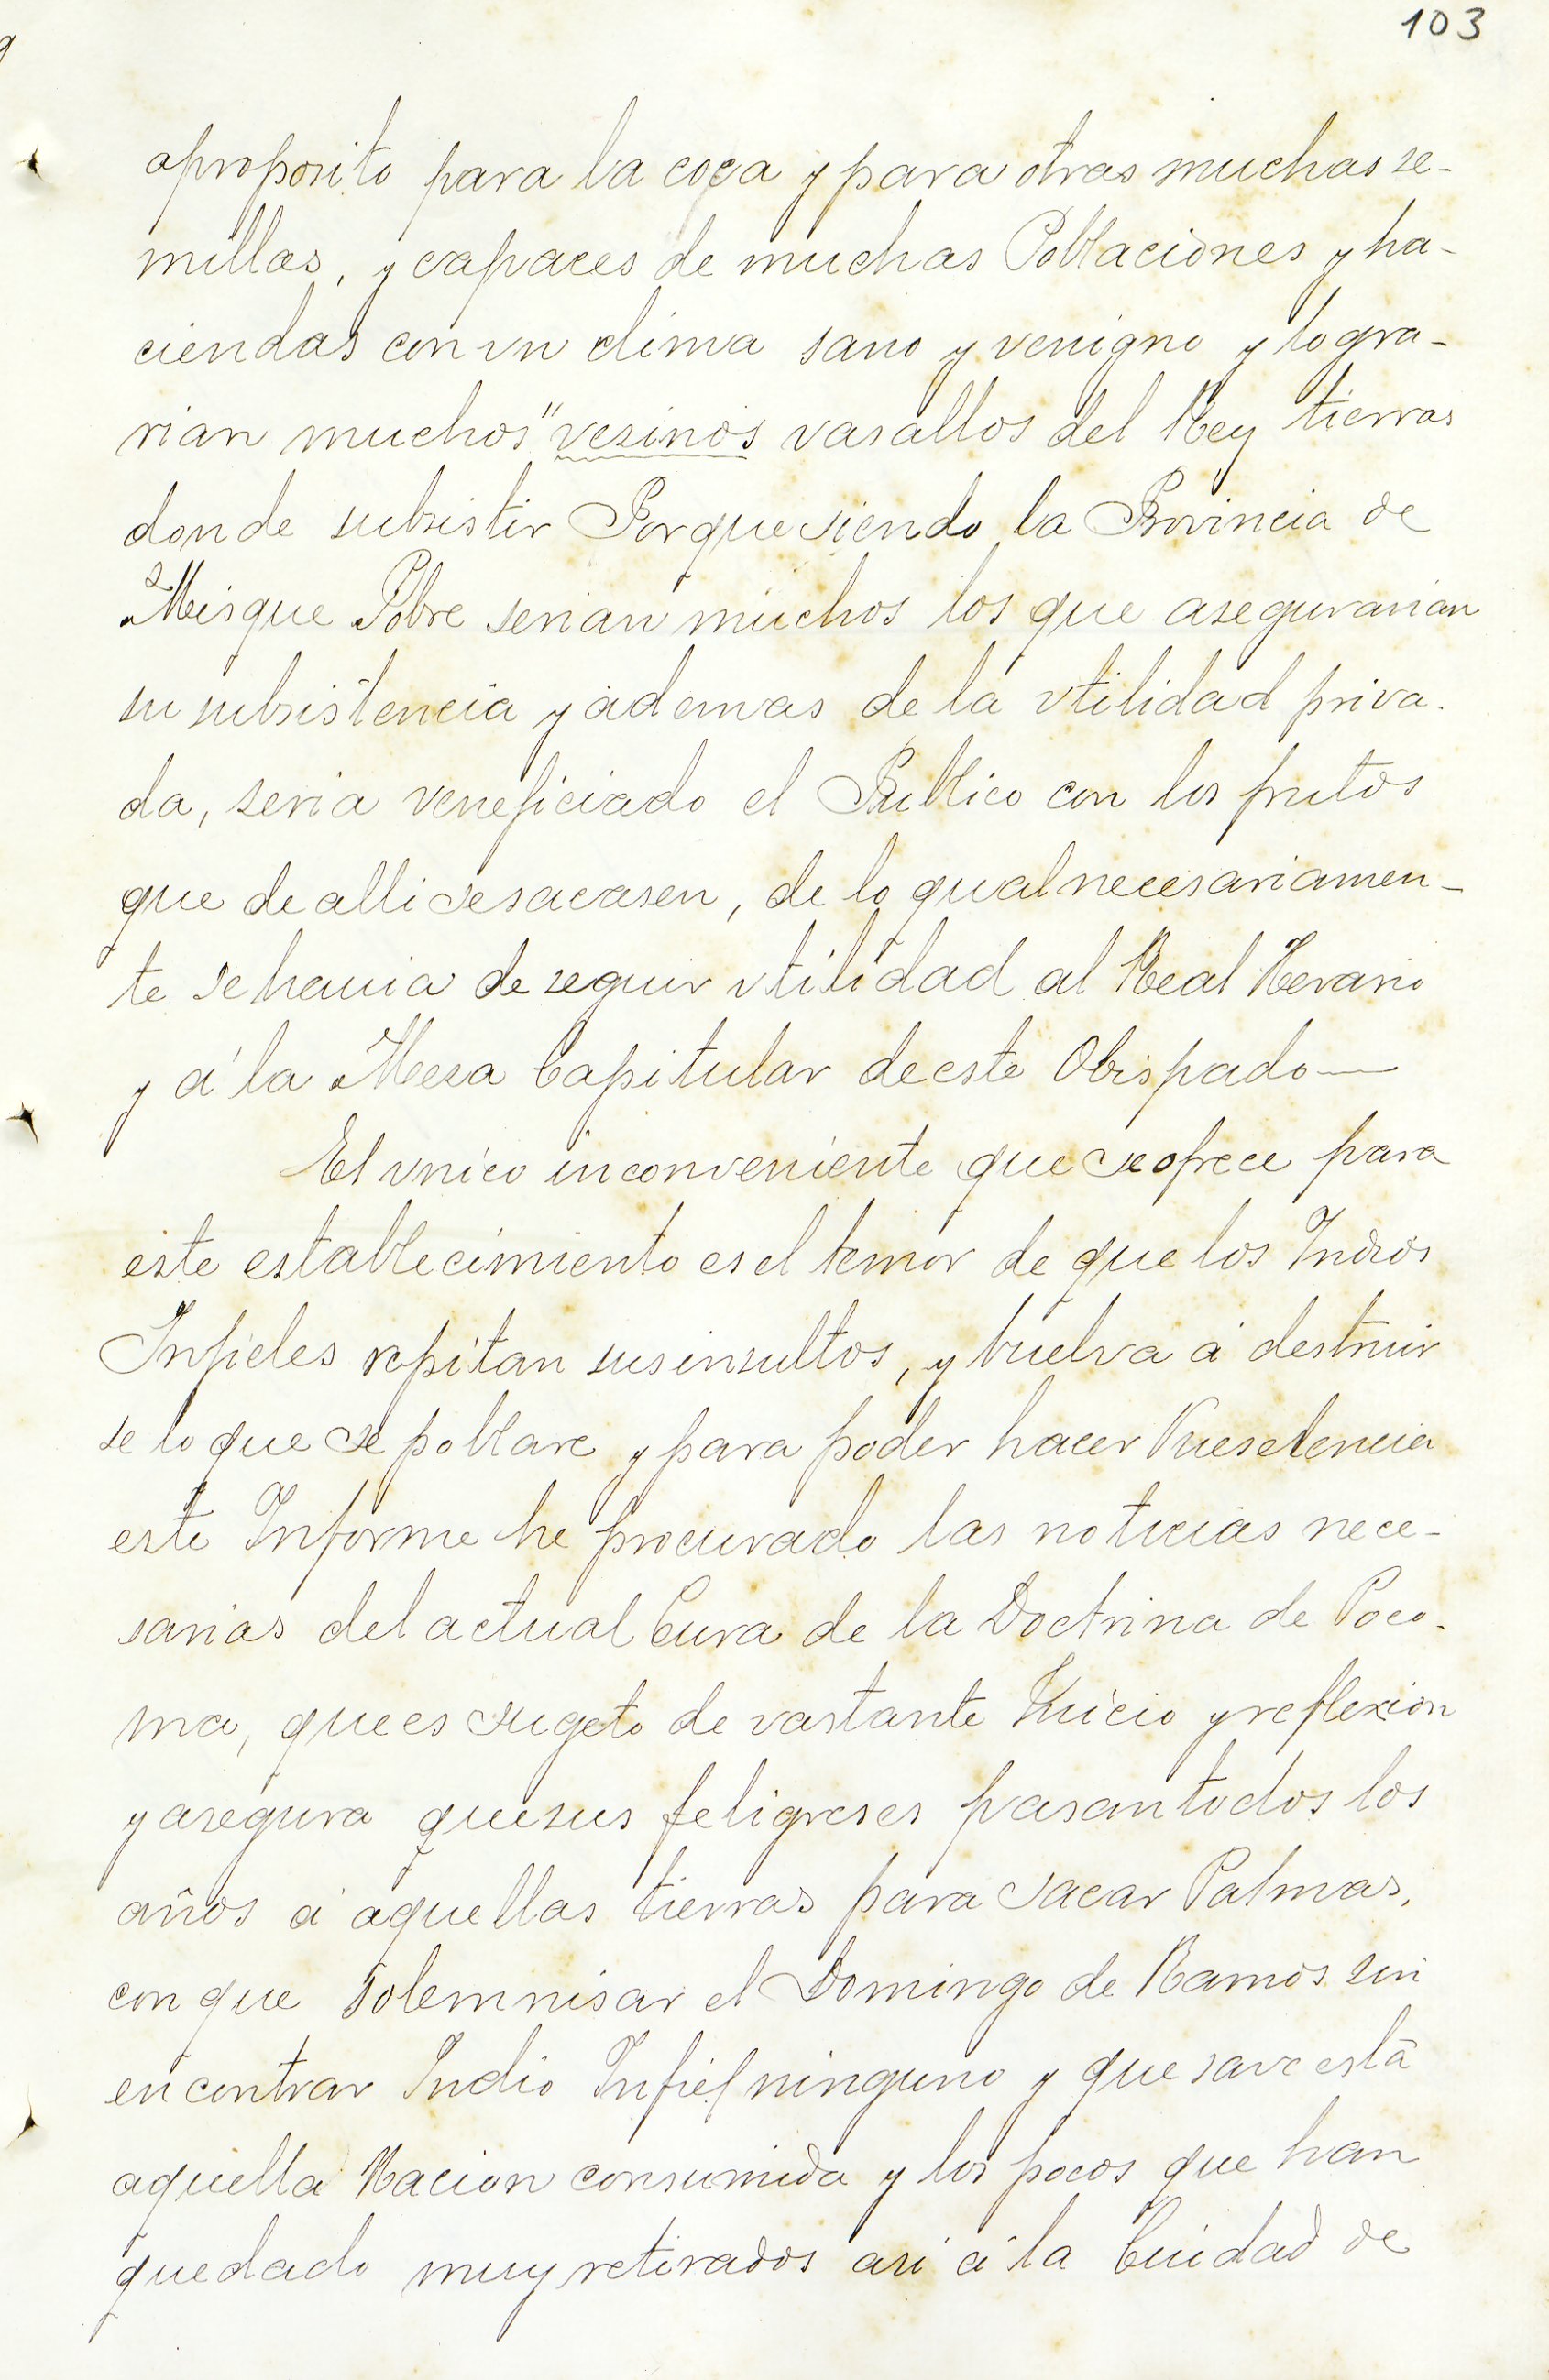 103
aproposito para la coca y para otras muchas se-
millas, y capaces de muchas Poblaciones y ha-
ciendas con vn clima sano y venigno y logra-
rian muchos "vesinos vasallos del Rey tierras
donde subsistir Porque siendo la Provincia de
Misque Pobre serian muchos los que asegurarian
su subsistencia y ademas de la vtilidad priva-
da, seria veneficiado el Publico con los frutos
que de alli se sacasen, de lo qual necesariamen-
te se havia de seguir vtilidad al Real Herario
y á la Mesa Capitular de este Obispado—
El vnico inconveniente que se ofrece para
este establecimiento es el temor de que los Indios
Infieles repitan sus insultos, y buelva á destruir
se lo que se poblare y para poder hacer Vueselencia
este Informe he procurado las noticias nece-
sarias del actual Cura de la Doctrina de Poco-
ma, que es sugeto de vastante Juicio y reflexion
y asegura que sus feligreses pasan todos los
años á aquellas tierras para sacar Palmas,
con que solemnisar el Domingo de Ramos sin
encontrar Indio Infiel ninguno y que save está
aquella Nacion consumida y los pocos que han
quedado muy retirados asi á la Ciudad de